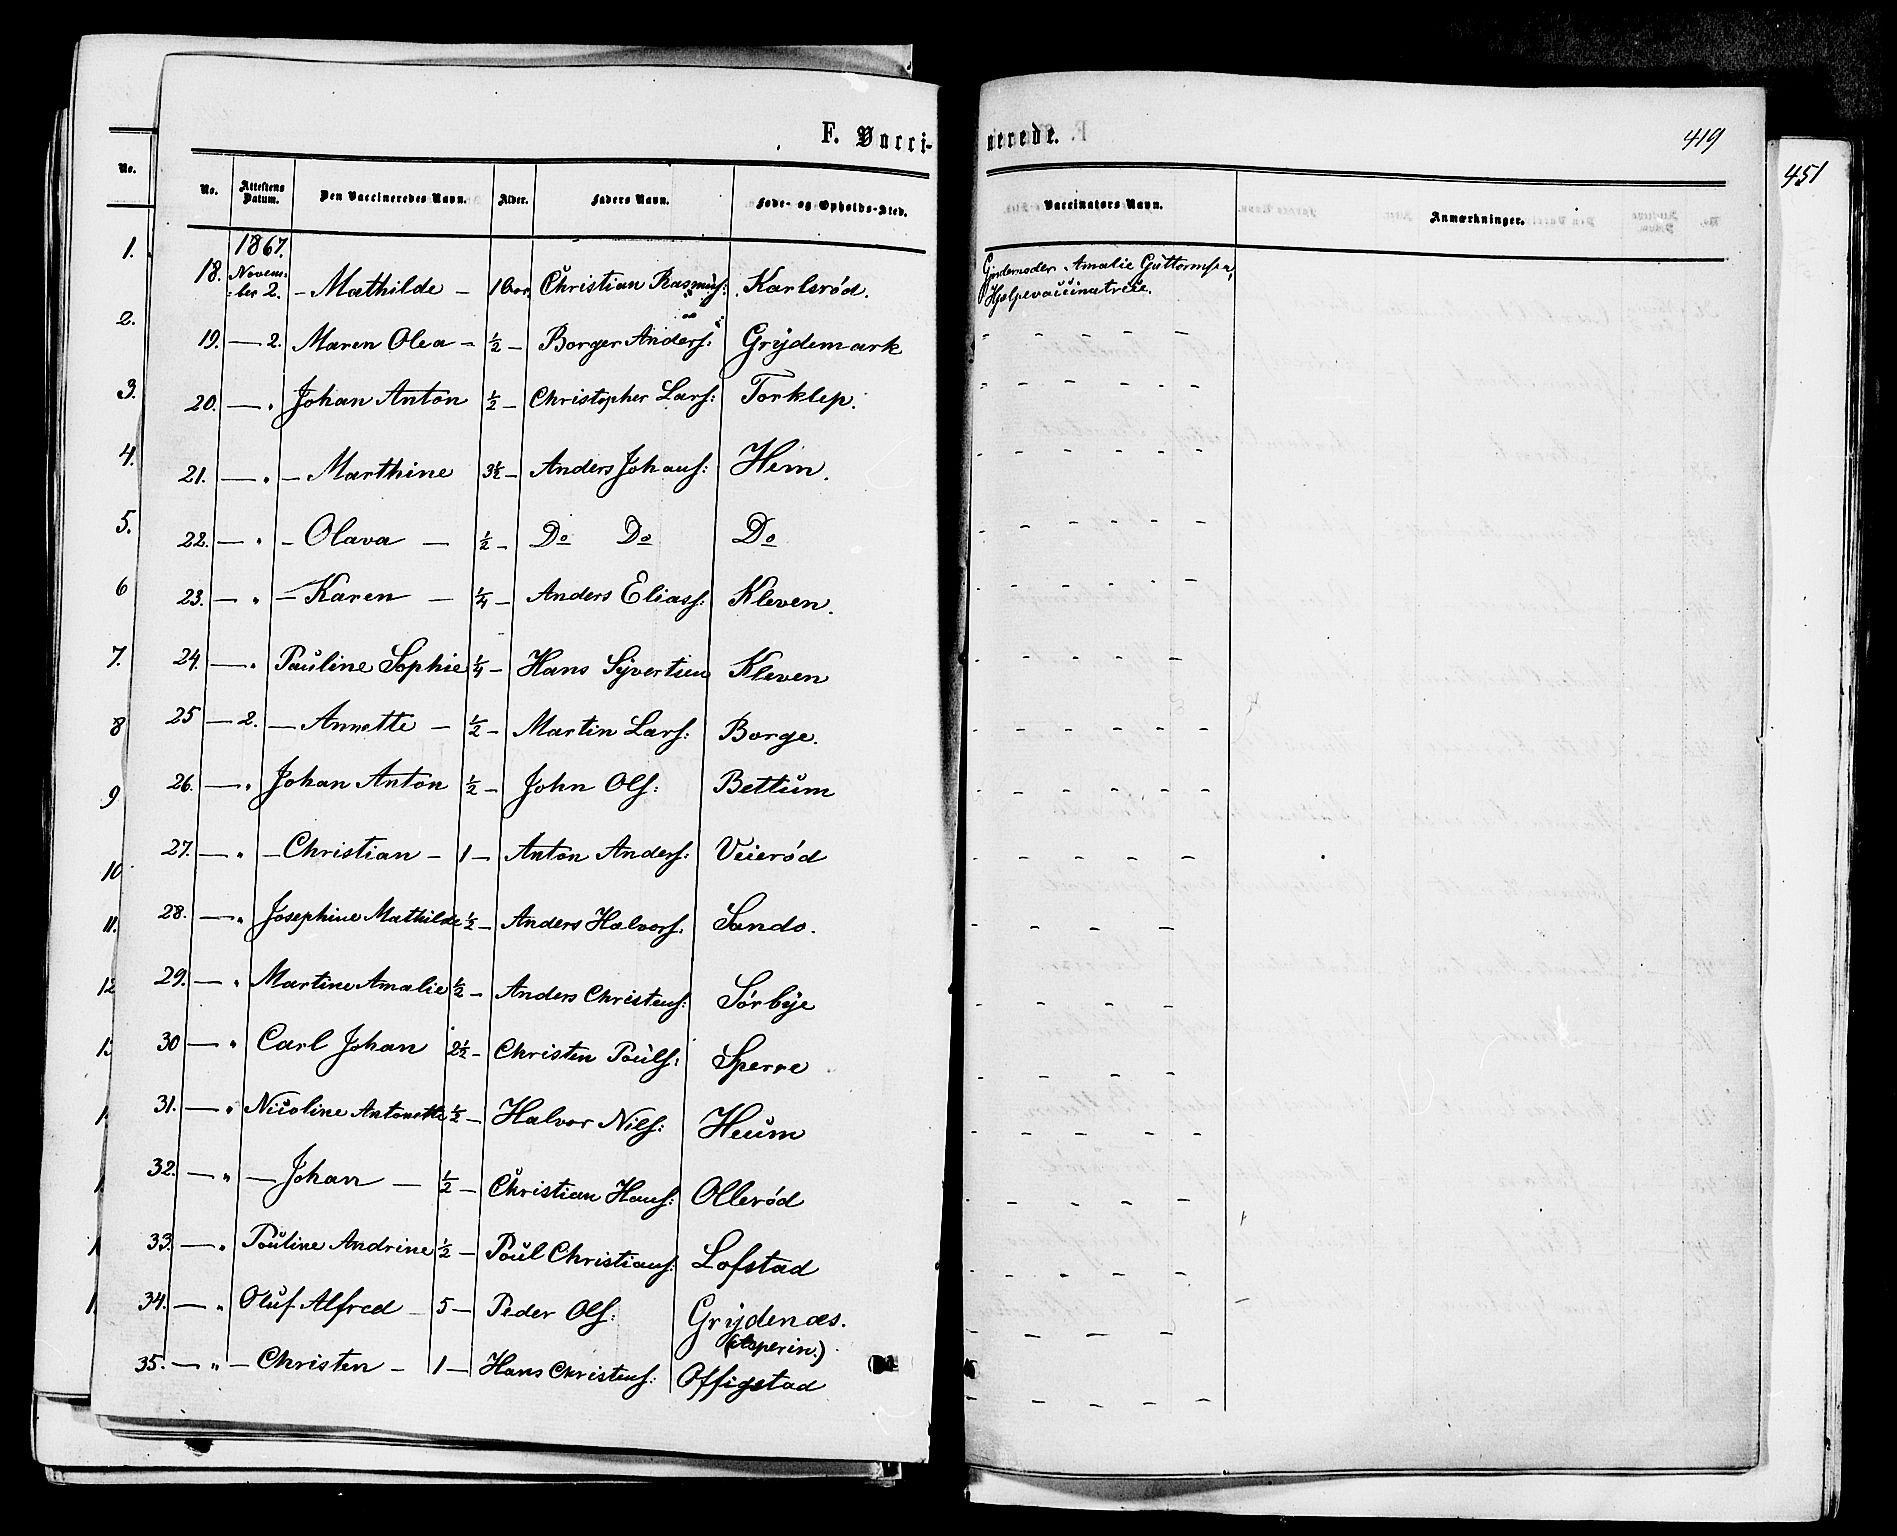 F. Vacci-
nerede.
419
451
No.
No. | Attestens Datum. | Den Vaccineredes Navn. | Alder. | Faders Navn. | Føde- og Opholds-Sted. | Vaccinators Navn. | Anmærkninger.
1867.
18. | Novem-:ber 2. | - Mathilde - | 1 | Christian Rasmuss: | Karlsrød. | Gjordemoder Amalie Guttormsen, Hjelpevaccinatrice.
19. | — 2. | Maren Olea - | ½ - | Borger Anders: | Grÿdemark | - - - - -
20. | — " | Johan Anton | ½ - | Christopher Lars: | Torklep. | - - - - -
21. | — " | - Marthine | 3½ - | Anders Johans: | Hem. | - - - - -
22. | — " | - Olava - | ½ - | Do Do | Do | - - - - -
23. | — " | - Karen - | ¼ - | Anders Elias: | Kleven. | - - - - -
24. | — " | Pauline Sophie | ¼ - | Hans Sÿvertsen | Kleven | - - - - -
25 | — 2. | - Annette - | ½ - | Martin Lars: | Borge. | - - - - -
26. | — " | Johan Anton | ½ - | John Ols: | Bettum | - - - - -
27. | — " | - Christian - | 1 - | Anton Anders: | Veierød | - - - -
28. | — " | Josephine Mathilde | ½ - | Anders Halvors: | Sando. | - - - -
29. | — " | Martine Amalie | ½ - | Anders Christens: | Sørbÿe | - - - -
30 | — " | Carl Johan | 2½ - | Christen Pouls: | Sperre | - - - -
31. | — " | Nicoline Antonette | ½ - | Halvor Nils: | Heum | - - - - -
32. | — " | - Johan - | ½ - | Christian Hans: | Ollerød | - - - -
33. | — " | Pouline Andrine | ½ - | Poul Christians: | Lofstad | - - - -
34. | — " | Oluf Alfred - | 5 - | Peder Ols: | Grÿdenæs. | - - - -
35. | — " | - Christen - | 1 - | Hans Christens: | Offigstad | - - - - -
1.
2.
3.
4.
5.
6
7.
8
9
10
11.
12